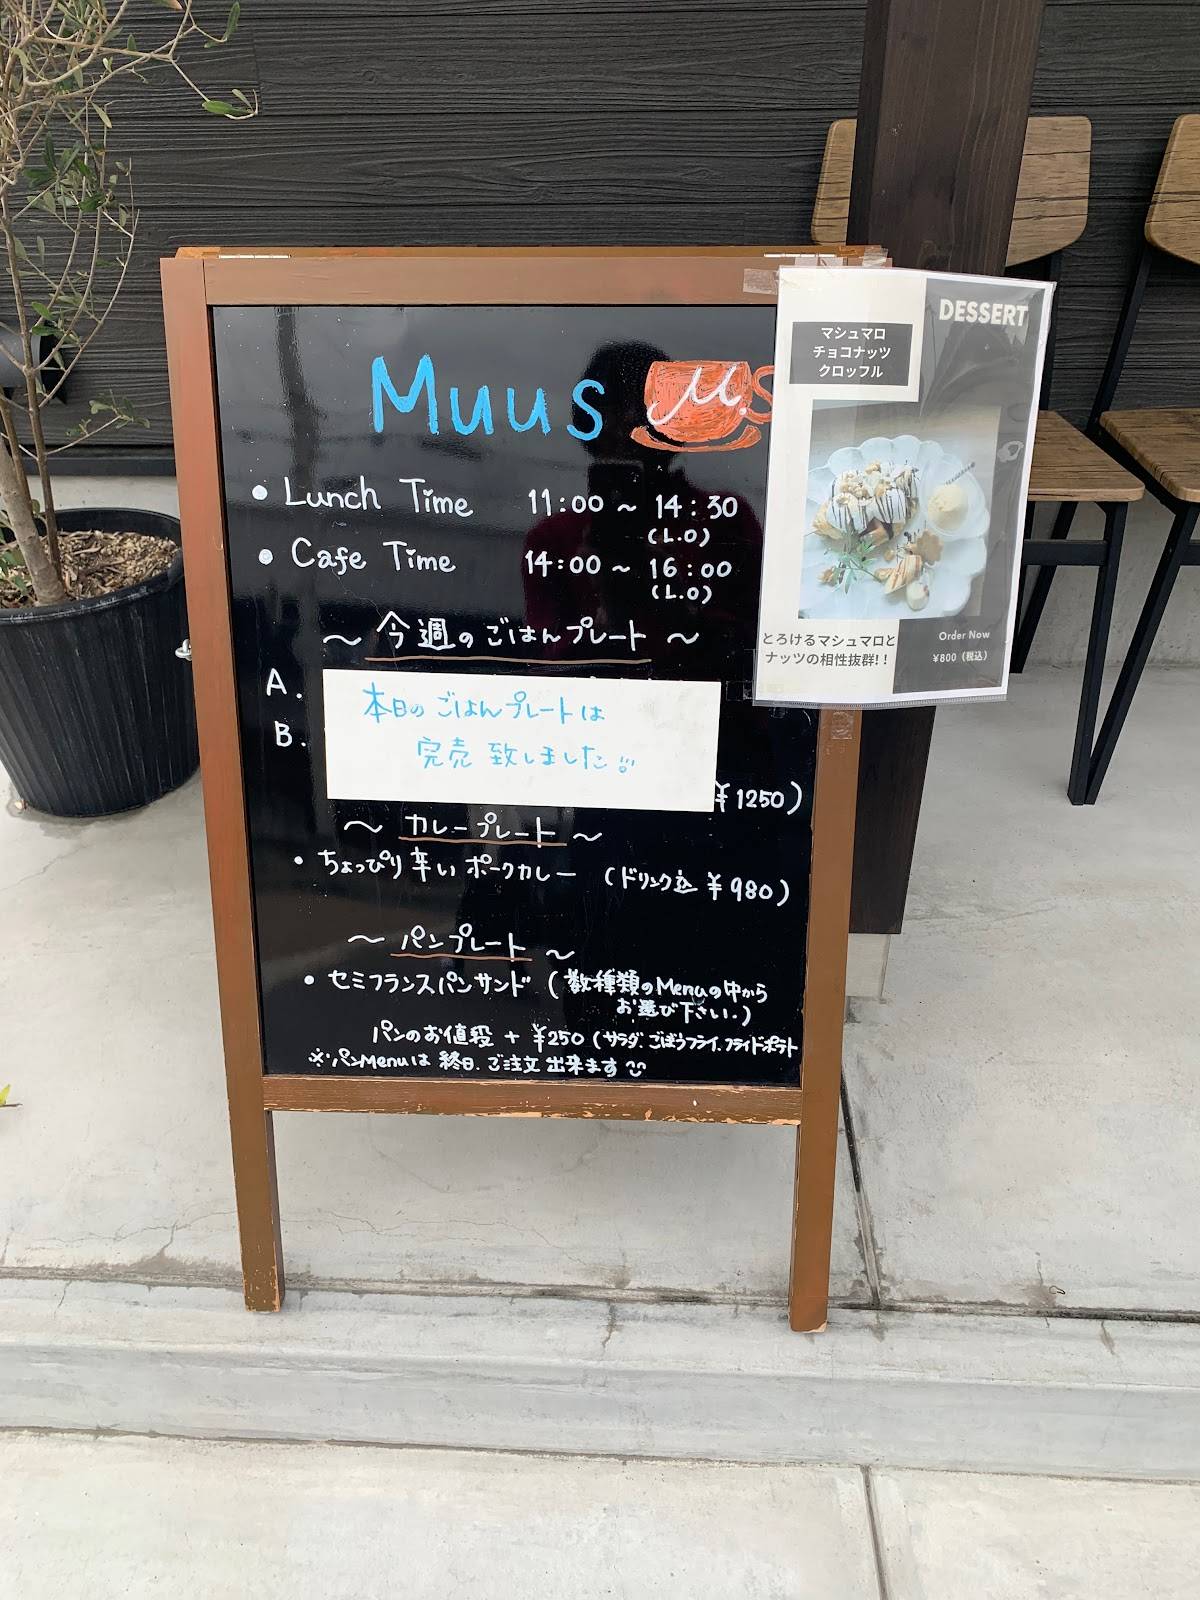 Muus
M.S
• Lunch Time 11:00 ~ 14:30
(L.O)
• Cafe Time 14:00 ~ 16:00
(L.O)
～ 今週のごはんプレート ～
A.
B.
本日のごはんプレートは
完売致しました
¥1250)
～ カレープレート ～
• ちょっぴり辛いポークカレー (ドリンク込 ¥980)
～ パンプレート ～
• セミフランスパンサンド (数種類のMenuの中から
お選び下さい。)
パンのお値段 + ¥250 (サラダ、ごぼうフライ、フライドポテト
※パンMenuは終日、ご注文出来ます
DESSERT
マシュマロ
チョコナッツ
クロッフル
とろけるマシュマロと
ナッツの相性抜群!!
Order Now
¥800 (税込)